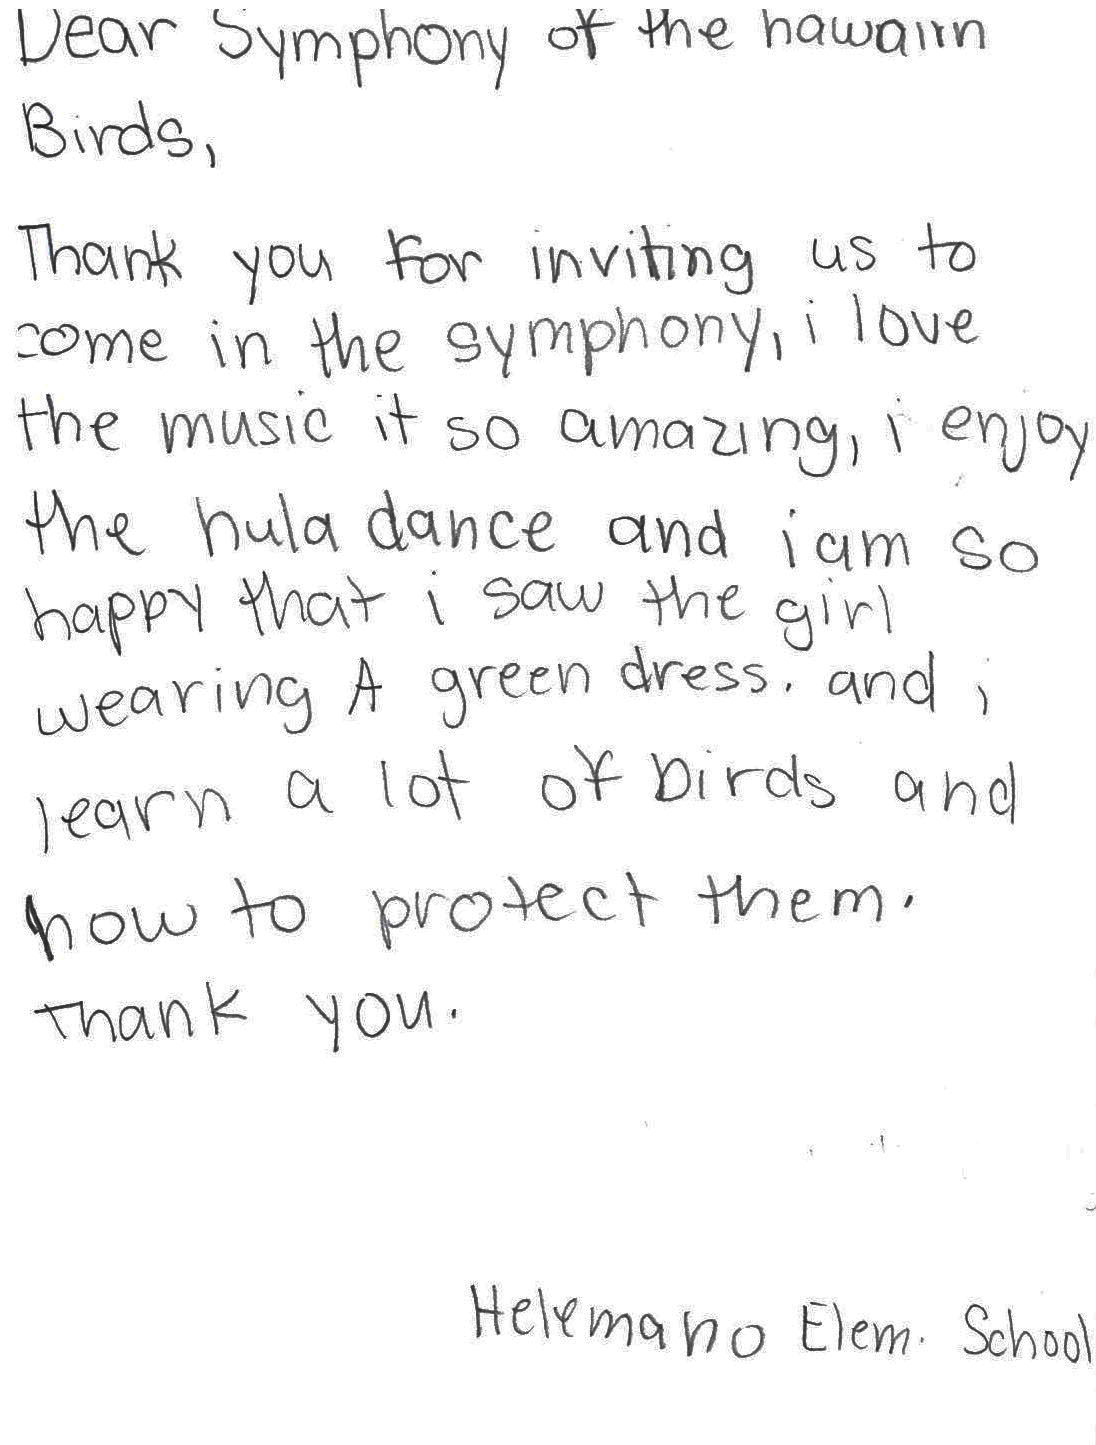 Dear Symphony of the hawaiin
Birds,
Thank you for inviting us to
come in the symphony, i love
the music it so amazing, i enjoy
the hula dance and i am so
happy that i saw the girl
wearing A green dress. and i
learn a lot of birds and
how to protect them.
Thank you.
Helemano Elem. School